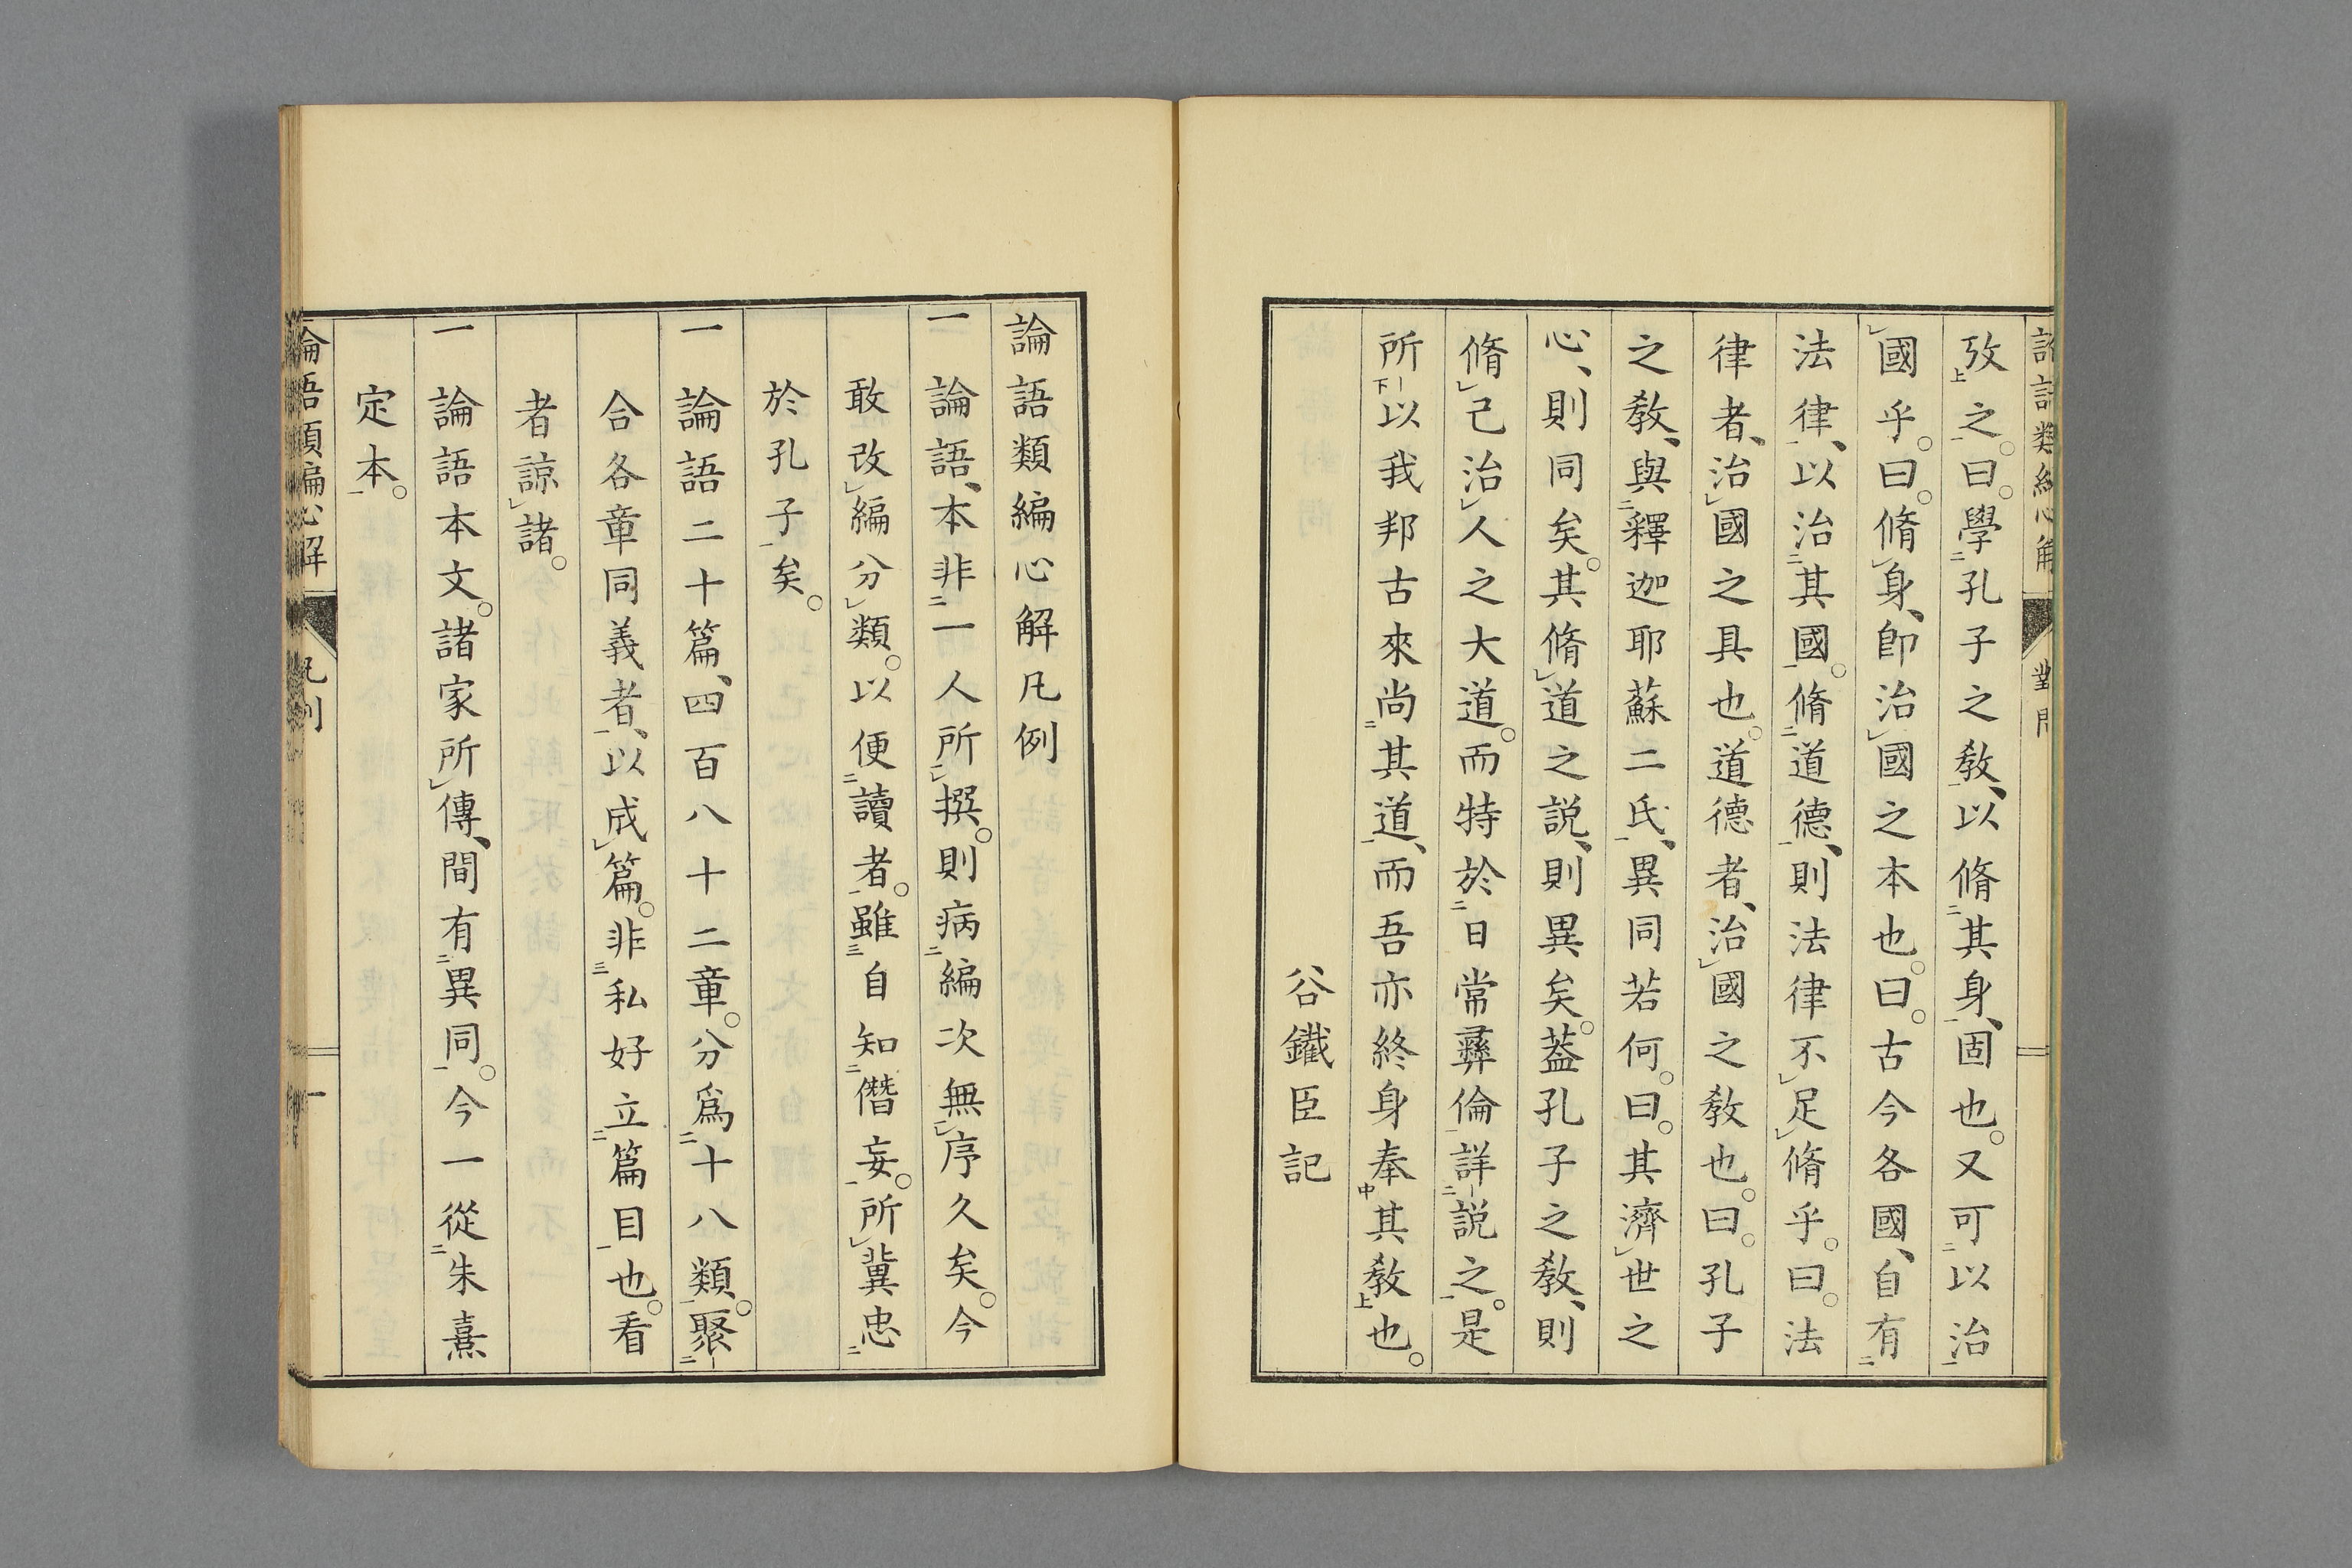 攷之。曰。學孔子之教、以脩其身、固也。又可以治
國乎。曰。脩身、即治國之本也。曰。古今各國、自有
法律、以治其國。脩道德、則法律不足脩乎。曰。法
律者、治國之具也。道德者、治國之教也。曰。孔子
之教、與釋迦耶蘇二氏、異同若何。曰。其濟世之
心、則同矣。其脩道之説、則異矣。蓋孔子之教、則
脩己治人之大道。而特於日常彝倫詳説之。是
所以我邦古來尚其道、而吾亦終身奉其教也。
谷鐵臣記
論語類編心解凡例
一論語、本非一人所撰。則病編次無序久矣。今
敢改編分類。以便讀者。雖自知僭妄。所冀忠
於孔子矣。
一論語二十篇、四百八十二章。分爲十八類。聚
合各章同義者、以成篇。非私好立篇目也。看
者諒諸。
一論語本文。諸家所傳、間有異同。今一從朱熹
定本。
論語類編心解 凡例 一